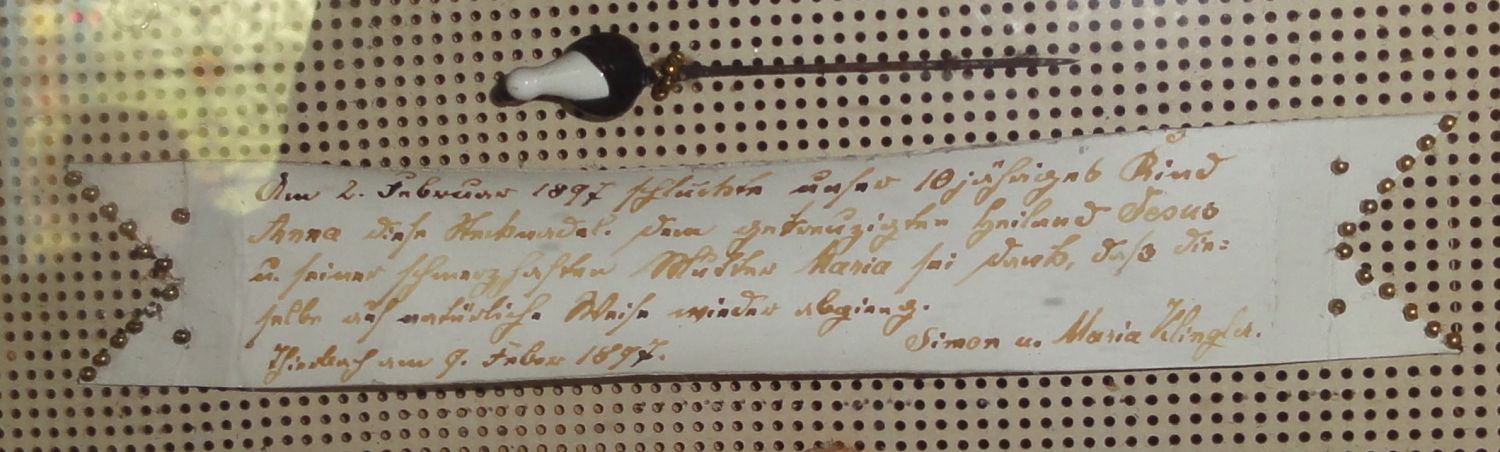 Am 2. Februar 1897 schluckte unser 10jähriges Kind
Anna diese Stecknadel. Dem gekreuzigten Heiland Jesus
u. seiner schmerzhaften Mutter Maria sei Dank, daß die=
selbe auf natürliche Weise wieder abgieng.
Thierbach am 9. Feber 1897.
Simon u. Maria Klingler.